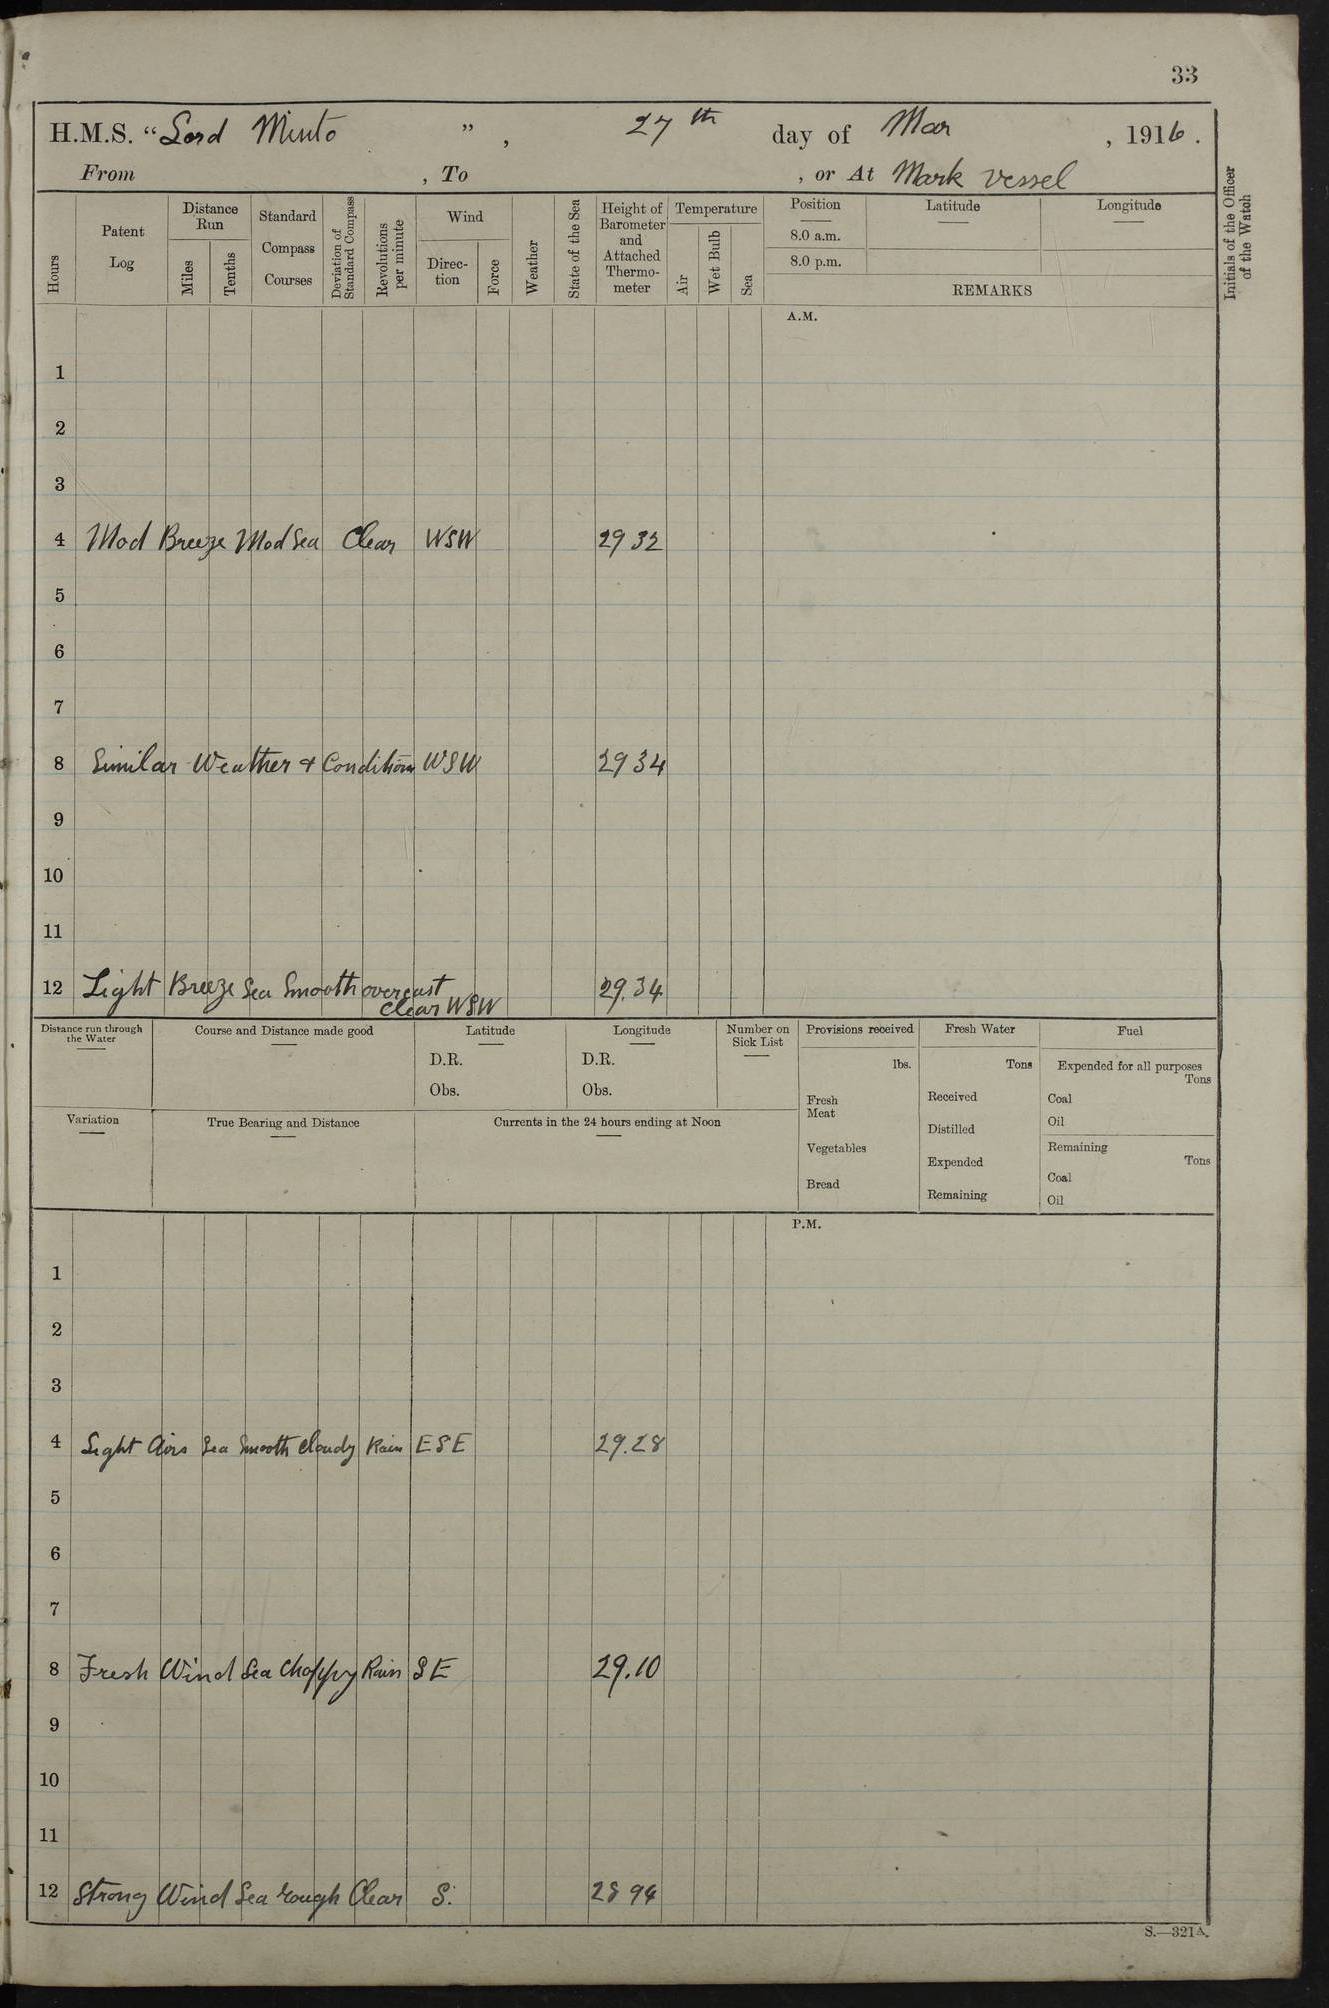 33
H.M.S. “Lord Minto ”, 27th day of Mar , 1916.
From , To , or At Mark Vessel
Hours
Patent Log
Distance Run
Miles
Tenths
Standard Compass Courses
Deviation of Standard Compass
Revolutions per minute
Wind
Direc-tion
Force
Weather
State of the Sea
Height of Barometer and Attached Thermo-meter
Temperature
Air
Wet Bulb
Sea
Position
8.0 a.m.
8.0 p.m.
Latitude
Longitude
REMARKS
Initials of the Officer of the Watch
A.M.
1
2
3
4 Mod Breeze Mod Sea Clear WSW 29 32
5
6
7
8 Similar Weather & Conditions WSW 29 34
9
10
11
12 Light Breeze Sea Smooth overcast 29.34
Clear WSW
Distance run through the Water
Course and Distance made good
Latitude
D.R.
Obs.
Longitude
D.R.
Obs.
Number on Sick List
Provisions received
lbs.
Fresh Meat
Vegetables
Bread
Fresh Water
Tons
Received
Distilled
Expended
Remaining
Fuel
Expended for all purposes
Tons
Coal
Oil
Remaining
Tons
Coal
Oil
Variation
True Bearing and Distance
Currents in the 24 hours ending at Noon
P.M.
1
2
3
4 Light Airs Sea Smooth Cloudy Rain ESE 29.28
5
6
7
8 Fresh Wind Sea Choppy Rain SE 29.10
9
10
11
12 Strong Wind Sea rough Clear S. 28 94
S.—321A.